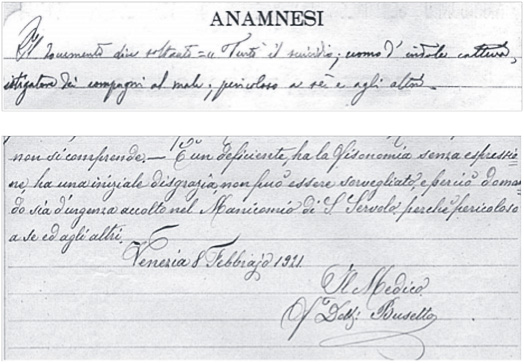 ANAMNESI
Il documento dice soltanto = " Tentò il suicidio; uomo d'indole cattiva,
istigatore dei compagni al male; pericoloso a sè e agli altri.
non si comprende. — È un deficiente, ha la fisonomia senza espressio
ne, ha una iniziale disgrazia, non può essere sorvegliato, e perciò doman
do sia d'urgenza accolto nel Manicomio di S. Servolo perchè pericoloso
a se ed agli altri.
Venezia 8 Febbrajo 1921
Il Medico
Dott. Busetto